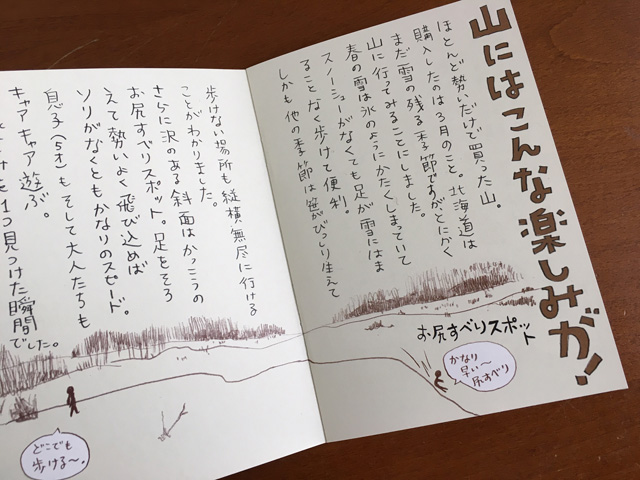 山にはこんな楽しみが!
ほとんど勢いだけで買った山。
購入したのは3月のこと。北海道は
まだ雪の残る季節ですがとにかく
山に行ってみることにしました。
春の雪は氷のようにかたくしまっていて
スノーシューがなくても足が雪にはま
ることなく歩けて便利。
しかも他の季節は笹がびっしり生えて
お尻すべりスポット
かなり
早い〜
尻すべり
歩けない場所も縦横無尽に行ける
ことがわかりました。
さらに沢のある斜面はかっこうの
お尻すべりスポット。足をそろ
えて勢いよく飛び込めば
ソリがなくともかなりのスピード。
息子(5才)もそして大人たちも
キャアキャア遊ぶ。
1つ見つけた瞬間でした。
どこでも
歩ける〜。